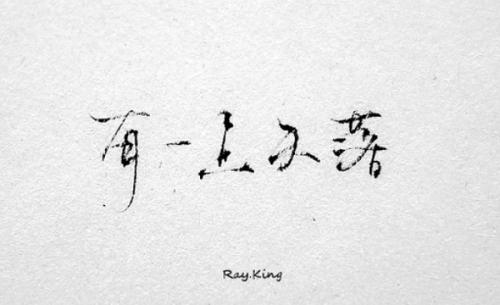 有一上又落
Ray.King